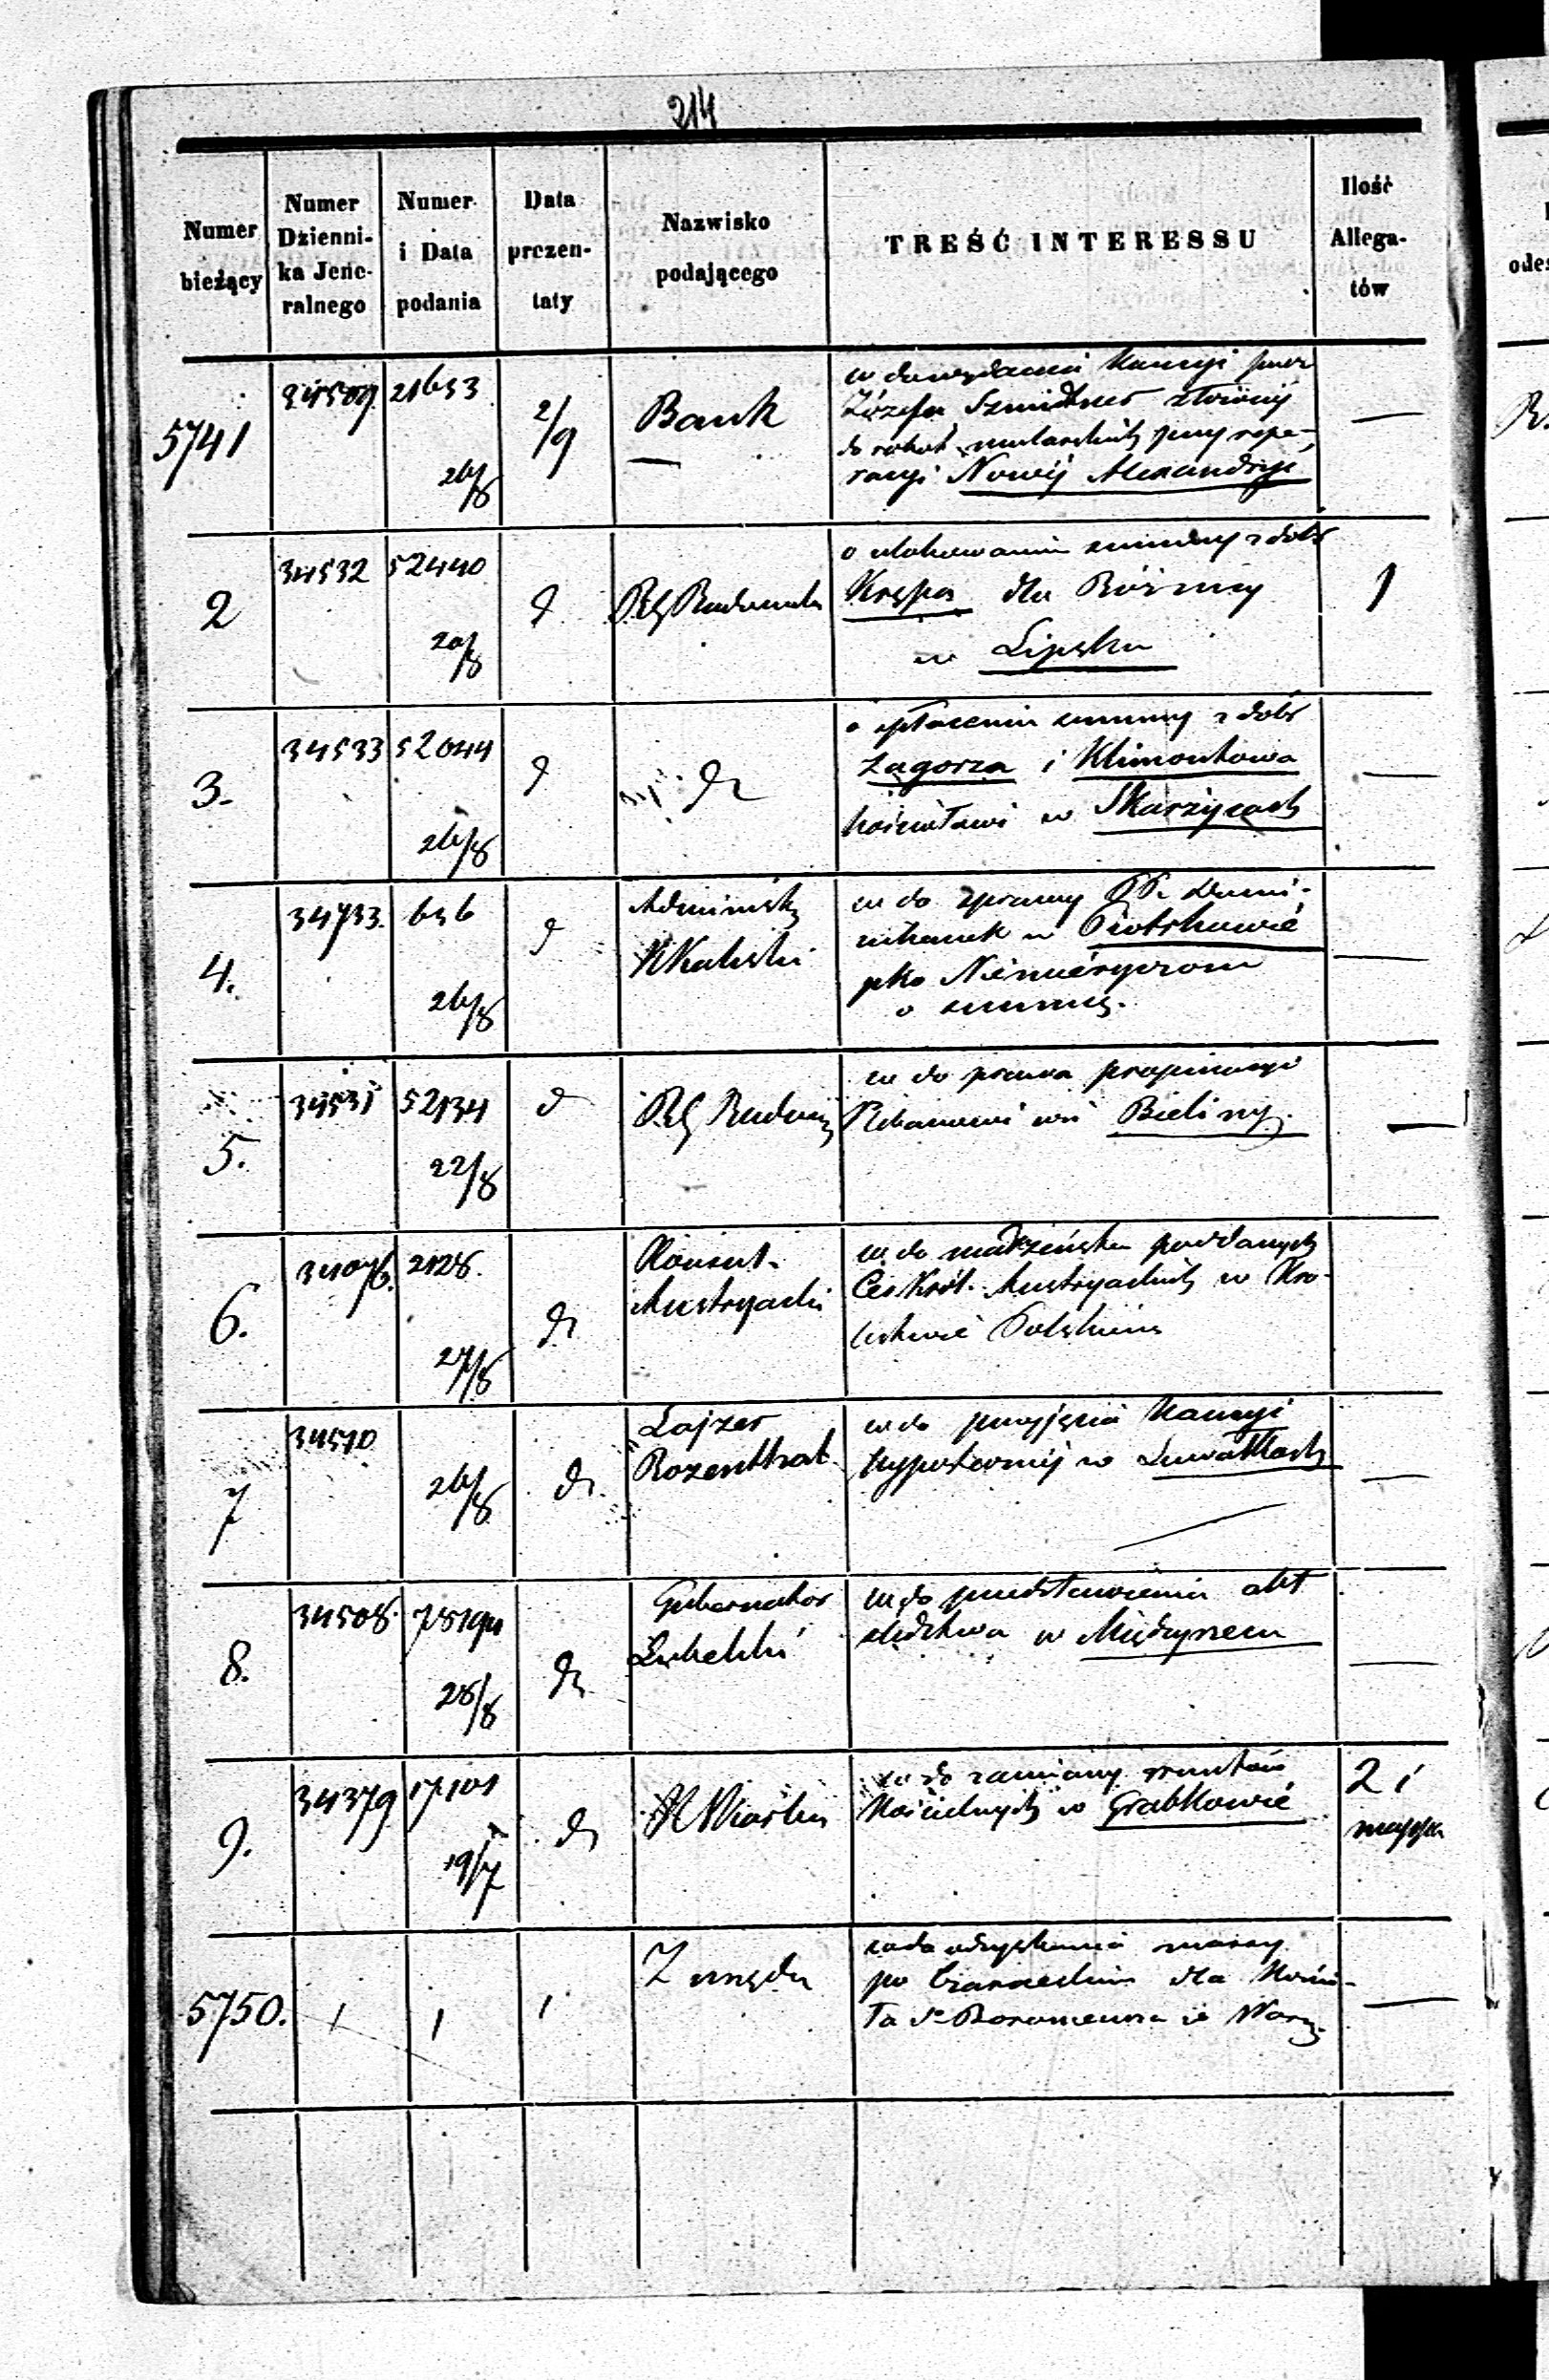 214
Numer bieżący
Numer Dzienni-
ka Jene-
ralnego
Numer
i Data
podania
Data
prezen-
taty
Nazwisko
podającego
TREŚĆ INTERESSU
Ilość
Allega-
tów
5741
34509
21653
26/8
2/9
Bank
—
Kaucyi przez
Józefa złożonej
do robót mularskich przy repe-
racyi Nowej Alexandryi
—
2
34532
52440
20/8
d
RG Radomski
o ulokowanie summy z dóbr
Krępa dla Bóżnicy
w Lipsku
1
3.
34533
52044
26/8
d
dt
o spłacenia summy z dóbr
Zagorza i Klimontowa
kościołowi w Skarżycach
—
4.
34733.
656
26/8
d
Administ
K Kaliski
co do sprawy PP. Domi-
nikanek w Piotrkowie
pko Niemieryczom
o summę.
—
5.
34531
52134
22/8
d
RG Radom
co do prawa propinacyi
Plebanowi wsi Bieliny.
—
6.
2128.
27/8
dt
Konsul.
Austryacki
co do małżeństw poddanych
Ces Król. Austryackich w Kró-
lestwie Polskiem
7
34510
26/8
dt.
Lajzer
Rozenthal
co do przyjęcia Kaucyi
hypotecznej w Suwałkach
—
8.
34508.
28/8
dt
Gubernator
Lubelski
co do przedstawienia akt
śledztwa w Międzyrzecu
—
9.
34379
17101
19/7
dt
co do zamiany gruntów
Kościelnych w Grabkowie
2 i
mappa
5750.
Z urzędu
co do odzyskania massy
po dla Kościo-
ła S. Boromeusza w Warsz.
—